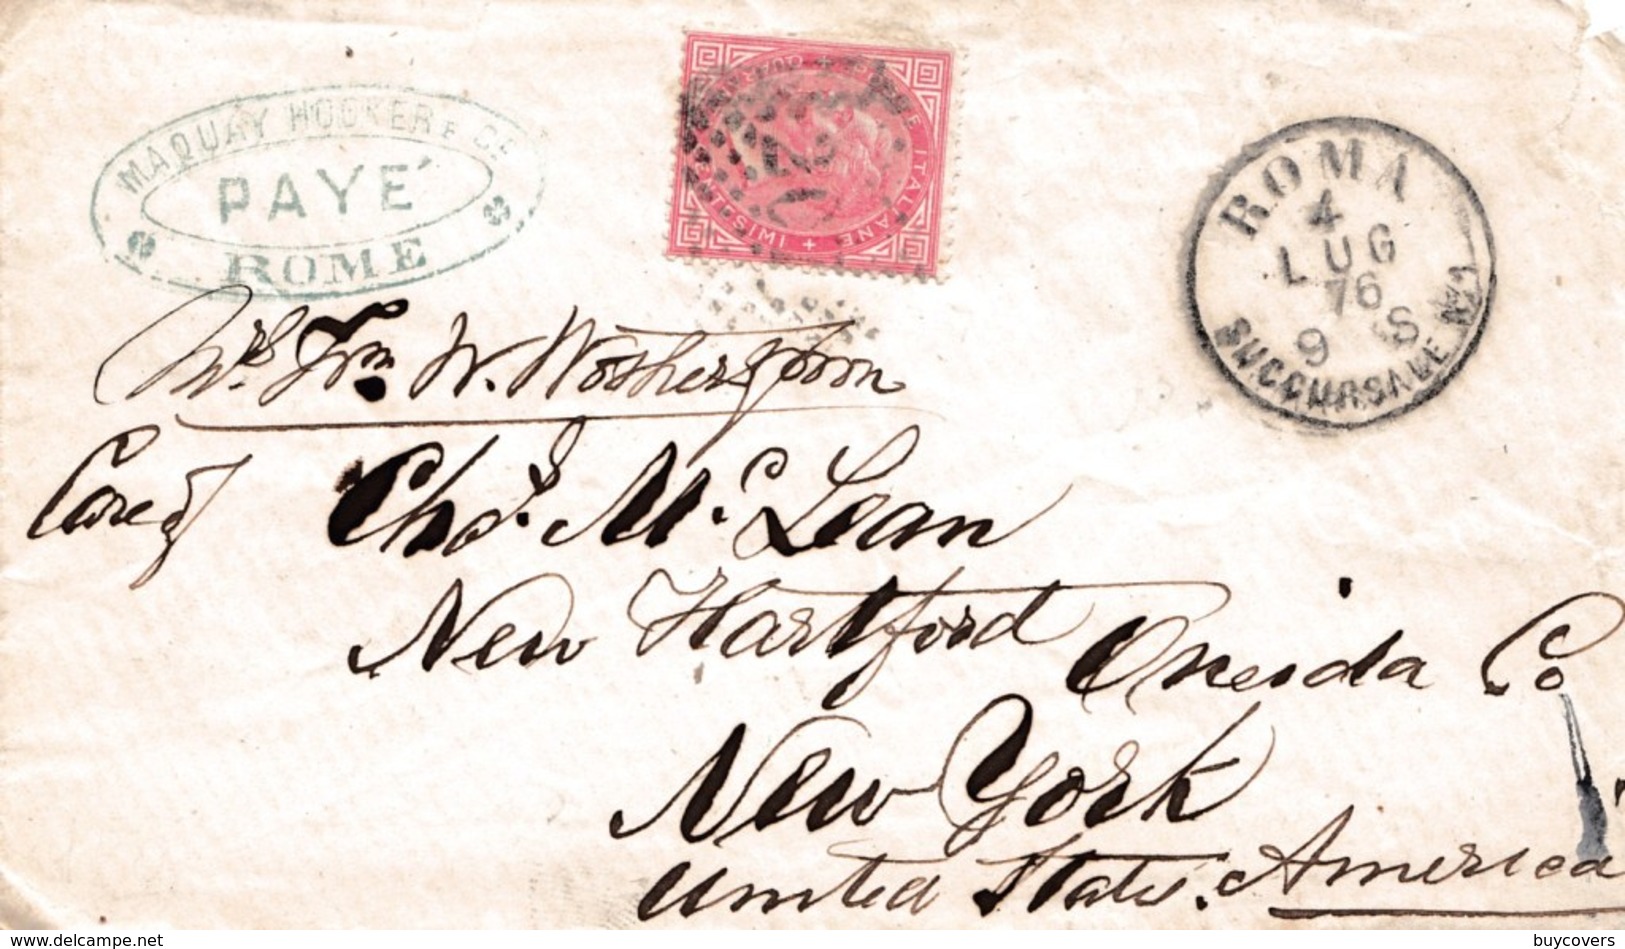 MAQUAY HOOKER & Co
PAYÉ
ROME
POSTE ITALIANE
ROMA
4
LUG
76
9 S
SUCCURSALE N 1
Mrs. Wm. W. Wotherspoon
Care of Chas. Mc. Lean
New Hartford
Oneida Co
New York
United States. America
delcampe.net
buycovers